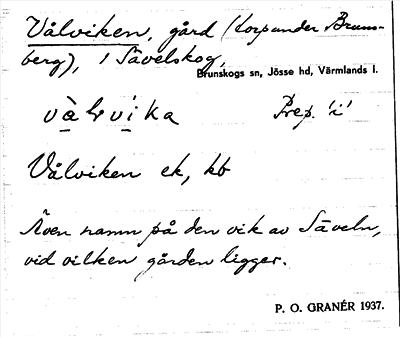 Vålviken, gård (torp under Bruns-
berg), i Sävelskog,
Brunskogs sn, Jösse hd, Värmlands l.
vàlvika Prep. 'i'
Vålviken ek, kb
Även namn på den vik av Säveln,
vid vilken gården ligger.
P. O. GRANÉR 1937.